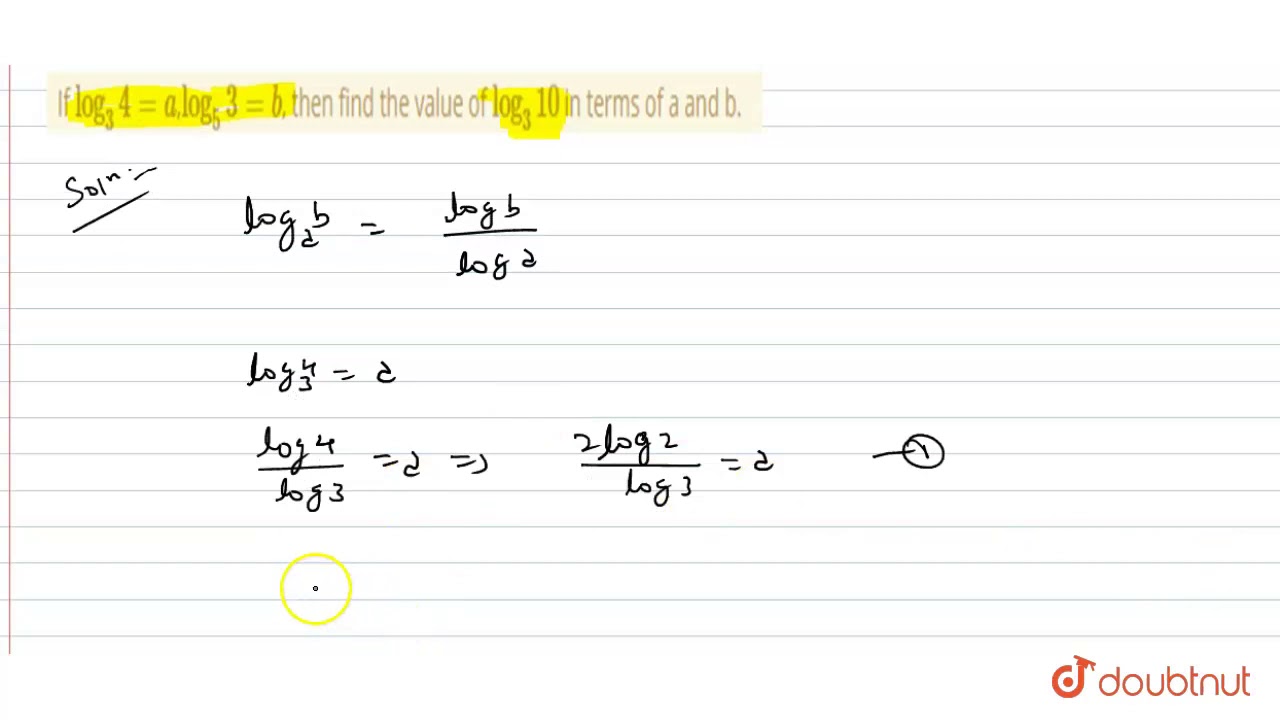 If log₃ 4 = a, log₅ 3 = b, then find the value of log₃ 10 in terms of a and b.
Solⁿ :-
logₐ b = log b / log a
log₃ 4 = a
log 4 / log 3 = a => 2 log 2 / log 3 = a — ①
doubtnut